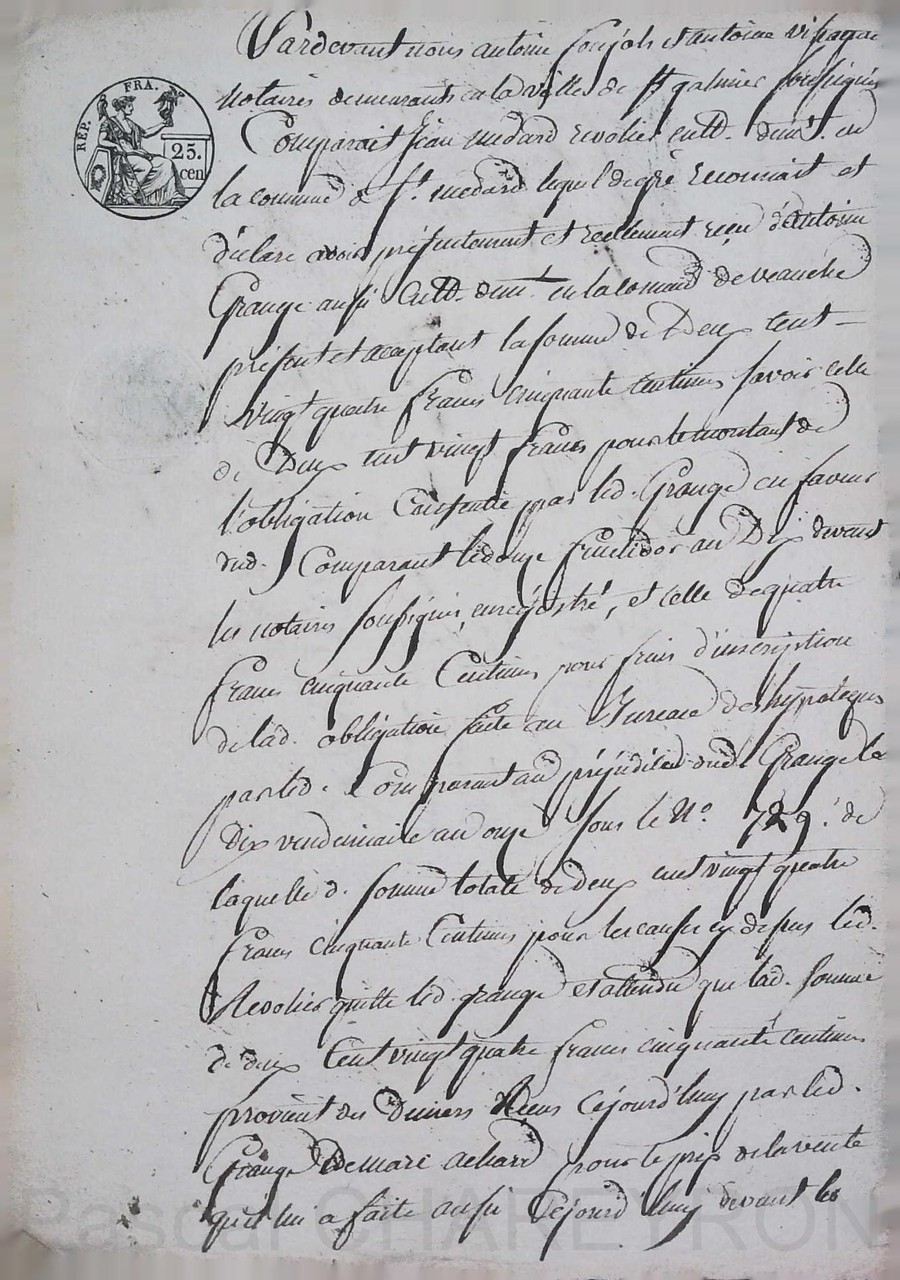 REP. FRA.
25. cen
Pardevant nous antoine et antoine
notaires demeurants en la ville de St galmier soussignés
Comparait jean medard revolier cultr. demt. en
la commune de St. medard lequel de gré reconnait et
déclare avoir présentement et reellement reçu d'antoine
Grange aussi cultr. demt. en la commune de veauche
présent et acceptant la somme de Deux cent
vingt quatre francs cinquante centimes savoir celle
de Deux cent vingt francs pour le montant de
l'obligation consentie par led. Grange en faveur
dud. Comparant le douze fructidor an Dix devant
les notaires soussignés, enregistré, et celle de quatre
francs cinquante Centimes pour frais d'inscription
de lad. obligation faite au Bureau des hypoteques
par led. Comparant au préjudice dud. Grange le
Dix vendemiaire an onze sous le No. 729. de
laquelle d. somme totale de deux cent vingt quatre
francs cinquante Centimes pour les causes cy dessus led.
Revolier quitte led. grange et attendu que lad. somme
de deux Cent vingt quatre francs cinquante centimes
provient des deniers Cejourd'huy par led.
Grange de marc achard pour le prix de la vente
qu'il lui a faite aussi Cejourd'huy devant les
Pascal CHAREYRON